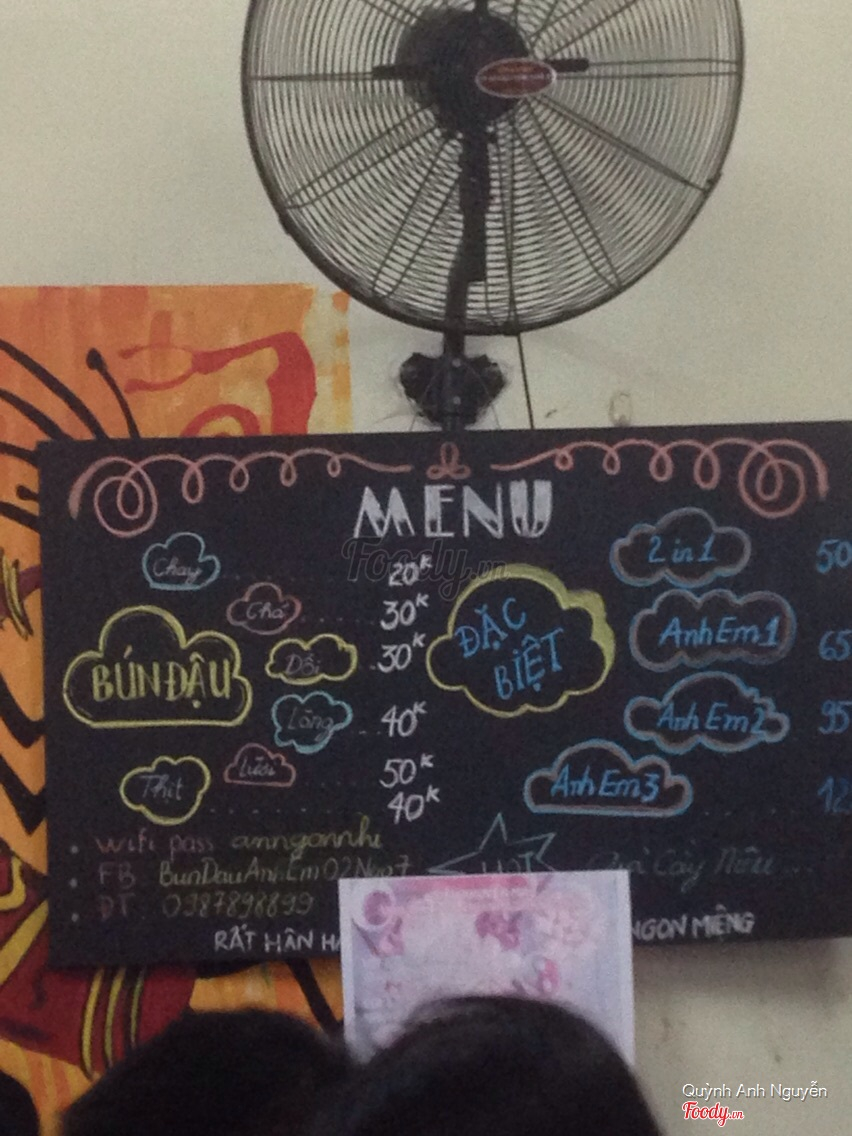 MENU
Foody.vn
Chay 20K
Chả 30K
BÚN ĐẬU
Dồi 30K
Lòng 40K
Lưỡi 50K
Thịt 40K
ĐẶC BIỆT
2 in 1 50
Anh Em 1 65
Anh Em 2 95
Anh Em 3 12
wifi pass anngannhi
FB BunDauAnhEm02Ngo7
ĐT 0987898899
HOT Giả Cầy Niêu...
RẤT HÂN HẠ
NGON MIỆNG
Quỳnh Anh Nguyễn
Foody.vn